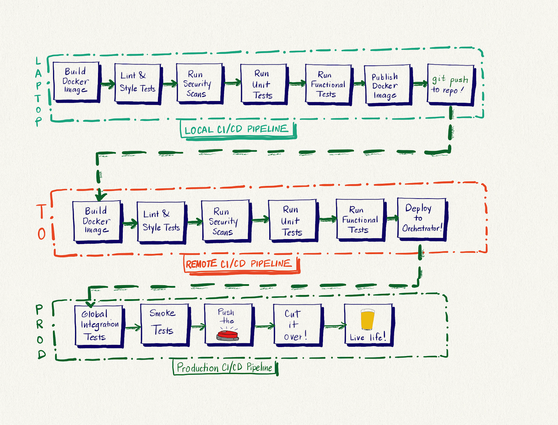 LAPTOP
Build
Docker
Image
Lint &
Style Tests
Run
Security
Scans
Run
Unit
Tests
Run
Functional
Tests
Publish
Docker
Image
git push
to repo!
LOCAL CI/CD PIPELINE
TO
Build
Docker
Image
Lint &
Style Tests
Run
Security
Scans
Run
Unit
Tests
Run
Functional
Tests
Deploy
to
Orchestrator!
REMOTE CI/CD PIPELINE
PROD
Global
Integration
Tests
Smoke
Tests
Push
the
Cut
it
over!
Live life!
Production CI/CD Pipeline